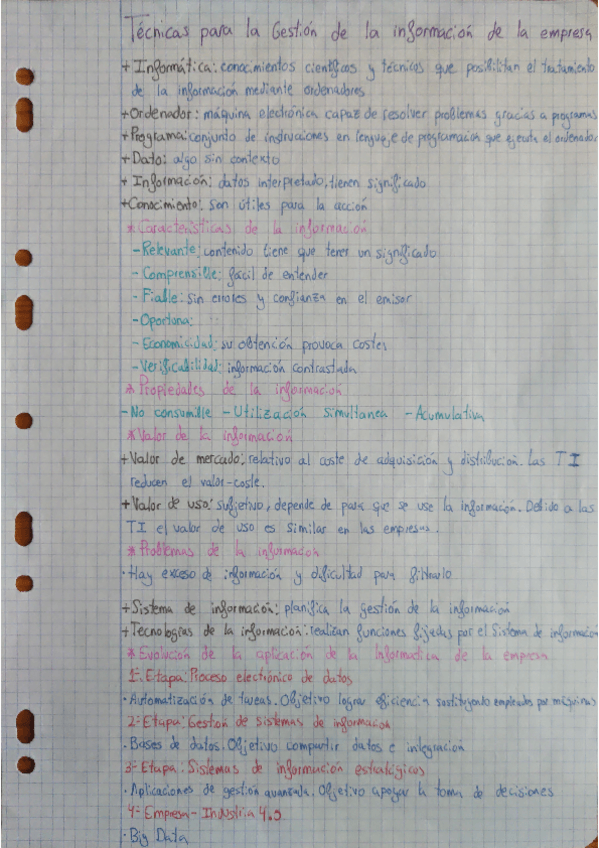 Técnicas para la Gestión de la información de la empresa
+ Informática: conocimientos científicos y técnicos que posibilitan el tratamiento
de la información mediante ordenadores
+Ordenador: máquina electrónica capaz de resolver problemas gracias a programas
+Programa: conjunto de instrucciones en lenguaje de programación que ejecuta el ordenador
+ Dato: algo sin contexto
+ Información: datos interpretado, tienen significado
+Conocimiento: son útiles para la acción
* Características de la información
- Relevante: contenido tiene que tener un significado
- Comprensible: fácil de entender
- Fiable: sin errores y confianza en el emisor
- Oportuna:
- Economicidad: su obtención provoca costes
- Verificabilidad: información contrastada
* Propiedades de la información
- No consumible - Utilización simultanea - Acumulativa
* Valor de la información
+ Valor de mercado: relativo al coste de adquisición y distribución. Las TI
reducen el valor-coste.
+ Valor de uso: subjetivo, depende de para que se use la información. Debido a las
TI el valor de uso es similar en las empresas.
* Problemas de la información
· Hay exceso de información y dificultad para filtrarlo
+ Sistema de información: planifica la gestión de la información
+ Tecnologías de la información: realizan funciones fijadas por el Sistema de información
* Evolución de la aplicación de la Informatica de la empresa
1- Etapa: Proceso electrónico de datos
· Automatización de tareas. Objetivo lograr eficiencia sustituyendo empleados por máquinas
2- Etapa: Gestión de sistemas de información
· Bases de datos. Objetivo compartir datos e integración
3- Etapa. Sistemas de información estratégicos
· Aplicaciones de gestión avanzada. Objetivo apoyar la toma de decisiones
4- Empresa - Industria 4.0
· Big Data